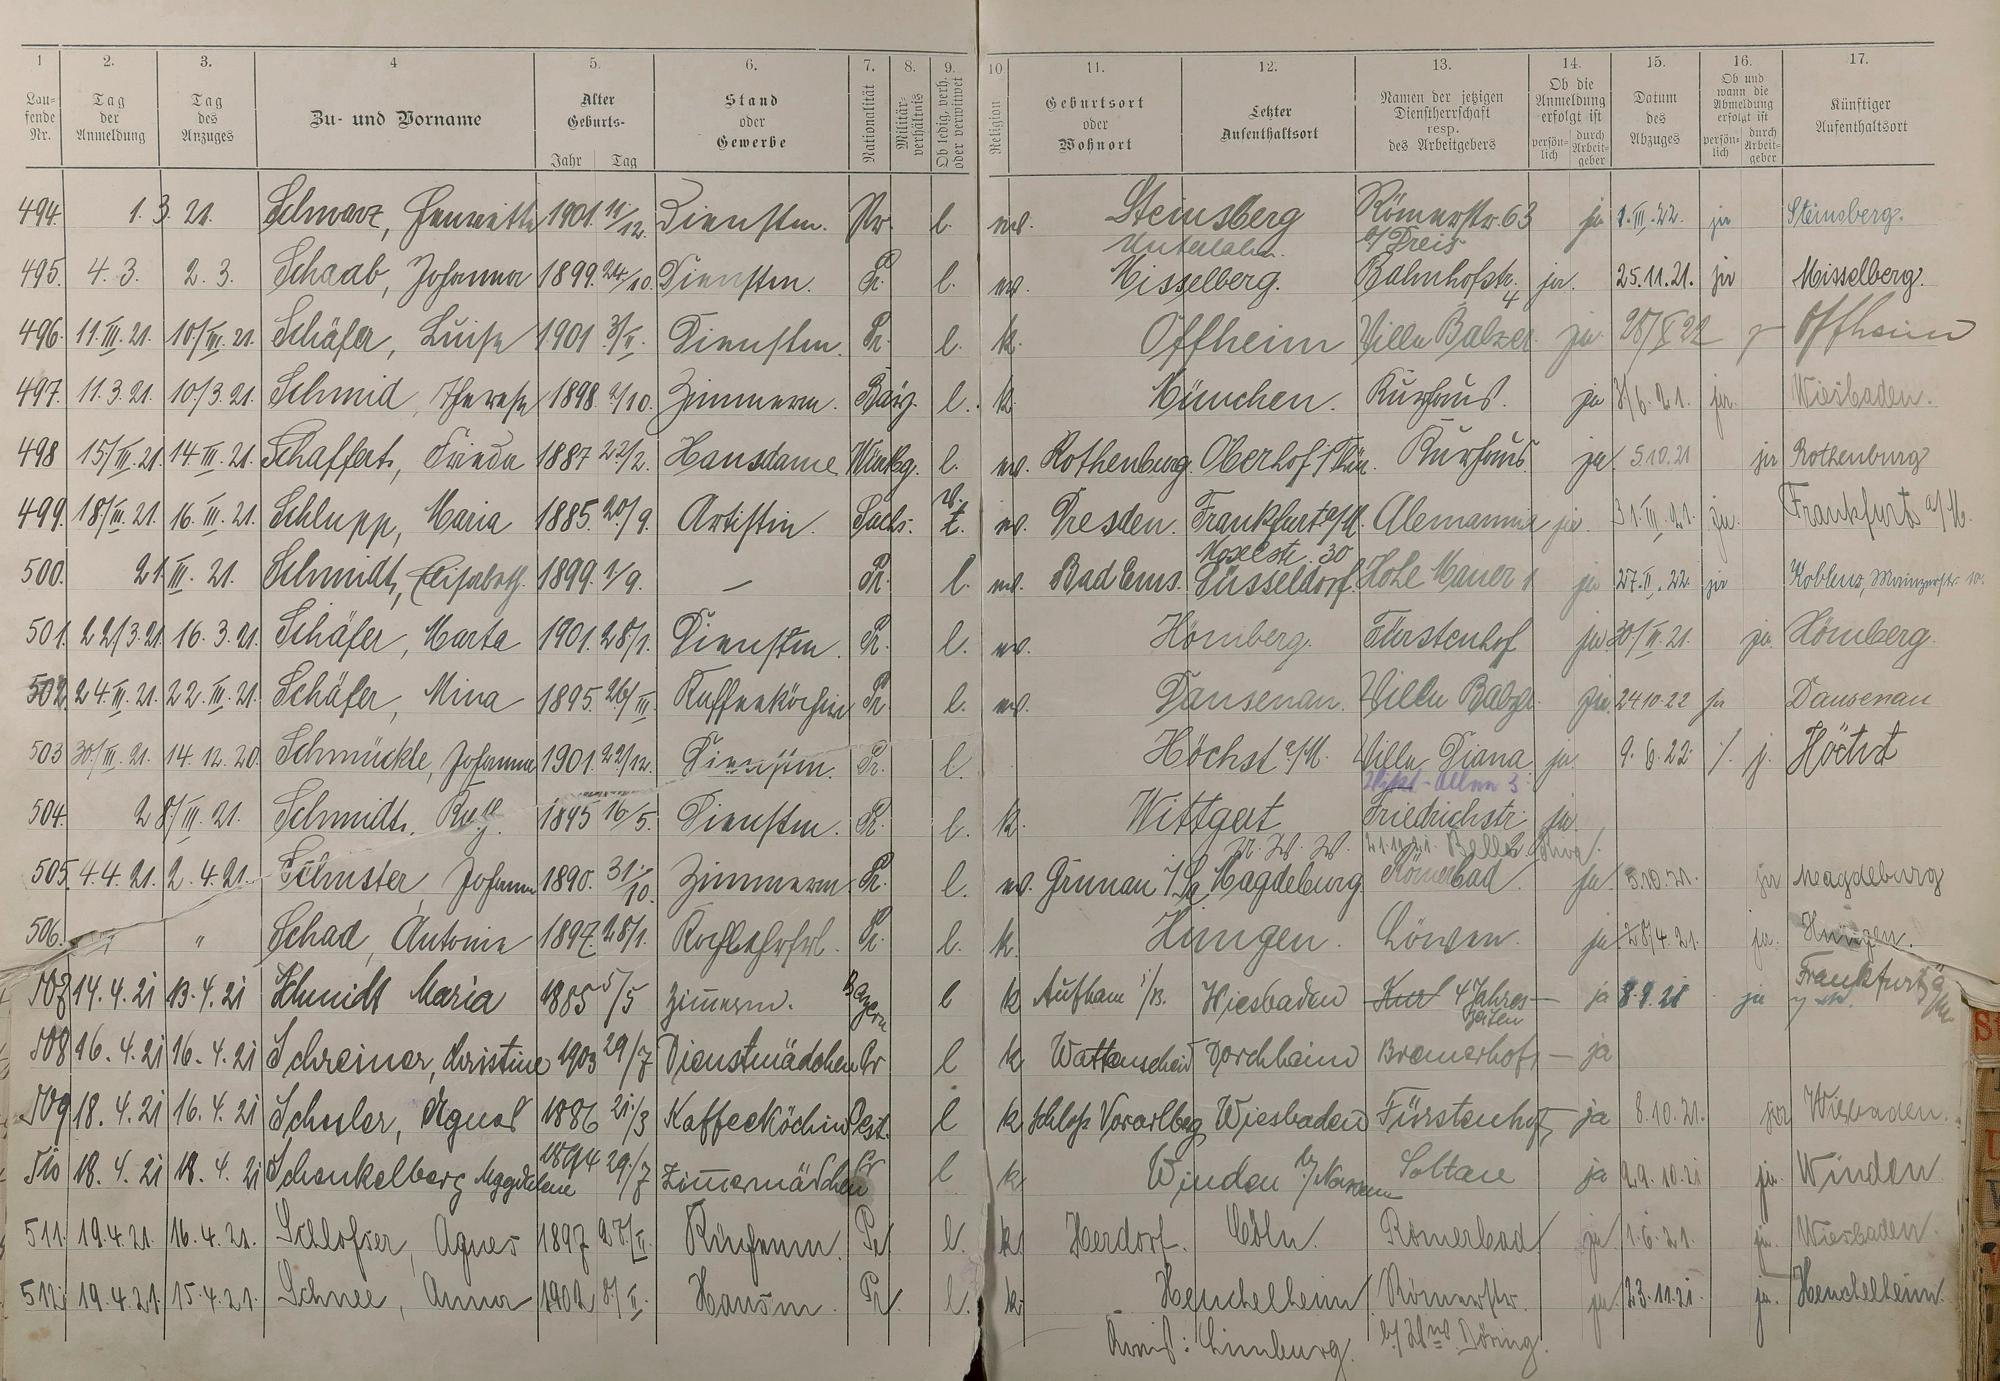 1 2. 3. 4 5. 6. 7. 8. 9. 10. 11. 12. 13. 14. 15. 16. 17.
Laufende Nr. Tag der Anmeldung Tag des Anzuges Zu- und Vorname Alter Geburts- Jahr Tag Stand oder Gewerbe Nationalität Militärverhältnis Ob ledig, verh. oder verwitwet Religion Geburtsort oder Wohnort Letzter Aufenthaltsort Namen der jetzigen Dienstherrschaft resp. des Arbeitgebers Ob die Anmeldung erfolgt ist persönlich durch Arbeitgeber Datum des Abzuges Ob und wann die Abmeldung erfolgt ist persönlich durch Arbeitgeber Künftiger Aufenthaltsort
494. 1. 3. 21. Schwarz, Henriette 1901. 11/12. Dienstm. Pr. l. ev. Steinsberg Römerstr. 63 ja 1. III. 22. ja Steinsberg.
Unterlahn. b/ Dreis
495. 4. 3. 2. 3. Schaab, Johanna 1899. 24/10. Dienstm. Pr. l. ev. Misselberg. Bahnhofstr. 4 ja. 25. 11. 21. ja Misselberg.
496. 11. III. 21. 10/III. 21. Schäfer, Luise 1901 Dienstm. Pr. l. k. Offheim Villa Balzer ja 28/X 22 Offheim
497. 11. 3. 21. 10/3. 21. Schmid, Therese 1898 Zimmerm. Bay. l. k. München. Kurhaus. ja 3/6. 21. ja. Wiesbaden.
498 15/III. 21. 14. III. 21. Schaffert, Frieda 1887 22/2. Hausdame Wttbg. l. ev. Rothenburg. Oberhof i Thür. Kurhaus. ja. 5. 10. 21 ja Rothenburg
499. 18/III. 21. 16. III. 21. Schlupp, Maria 1885. 20/9. Artistin. Sachs. ev. Dresden. Frankfurt a/M. Alemannia ja. 31. III. 21. ja. Frankfurt a/M.
Moselstr. 30
500. 21. III. 21. Schmidt, Elisabeth. 1899. 1/9. — Pr. l. ev. Bad Ems. Düsseldorf. Hohe Mauer 1 ja 27. II. 22. ja Koblenz, Mainzerstr. 10.
501. 22/3. 21. 16. 3. 21. Schäfer, Marta 1901. 28/1. Dienstm. Pr. l. ev. Hömberg. Fürstenhof ja 30/III. 21. ja. Hömberg.
502. 24. III. 21. 22. III. 21. Schäfer, Mina 1895. 26/III. Kaffeeköchin Pr. l. ev. Dausenau. Villa Balzer ja. 24 10. 22 ja Dausenau
503 30/III. 21. 14. 12. 20. Schmückle, Johanna 1901. 22/12. Dienstm. Pr. l. Höchst a/M. Villa Diana ja. 9. 6. 22 j. Höchst
Vikt-Allee 3.
504. 28/III. 21. Schmidt, 1895 16/5. Dienstm. Pr. l. k. Wittgert Friedrichstr. ja.
21. 11. 21.
505. 4. 4. 21. 2. 4. 21. Schuster, Johanna 1890. 31/10. Zimmerm. Pr. l. ev. Grunau Magdeburg Römerbad ja 3. 10. 21. ja Magdeburg
506. " " Schad, Antonie 1897. 28/1. Kochlehrfrl. Pr. l. k. Hüngen. Löwen. ja 28/4. 21. ja. Hüngen.
507 14. 4. 21 13. 4. 21 Schmidt Maria 1885 5/5 Zimmerm. Bayern l k Aufham i/B. Wiesbaden Kur 4 Jahreszeiten ja 8. 9. 21 ja Frankfurt a/M
508 16. 4. 21 16. 4. 21 Schreiner, Christine 1903 29/7 Dienstmädchen Pr l k Wattenscheid Dorchheim Bremerhof — ja
509 18. 4. 21 16. 4. 21 Schuler, Agnes 1886 21/3 Kaffeeköchin Oest. l k Schlofs Vorarlberg Wiesbaden Fürstenhof ja 8. 10. 21. ja Wiesbaden.
510 18. 4. 21 18. 4. 21 Schenkelberg Magdalene 1894 29/7 Zimmermädchen Pr l k Winden b/Nassau Soltau ja 29. 10. 21 ja. Winden
511. 19. 4. 21. 16. 4. 21. Schlosser, Agnes 1897 27/II. Küchenm. Pr l. k Herdorf. Cöln. Römerbad ja 1. 6. 21. ja. Wiesbaden.
512 19. 4. 21. 15. 4. 21. Schnee, Anna 1902 8/II. Hausm. Pr. l. k. Heuchelheim Römerstr. ja. 23. 11. 21. ja. Heuchelheim.
Kreis: Limburg. b/ Döring.